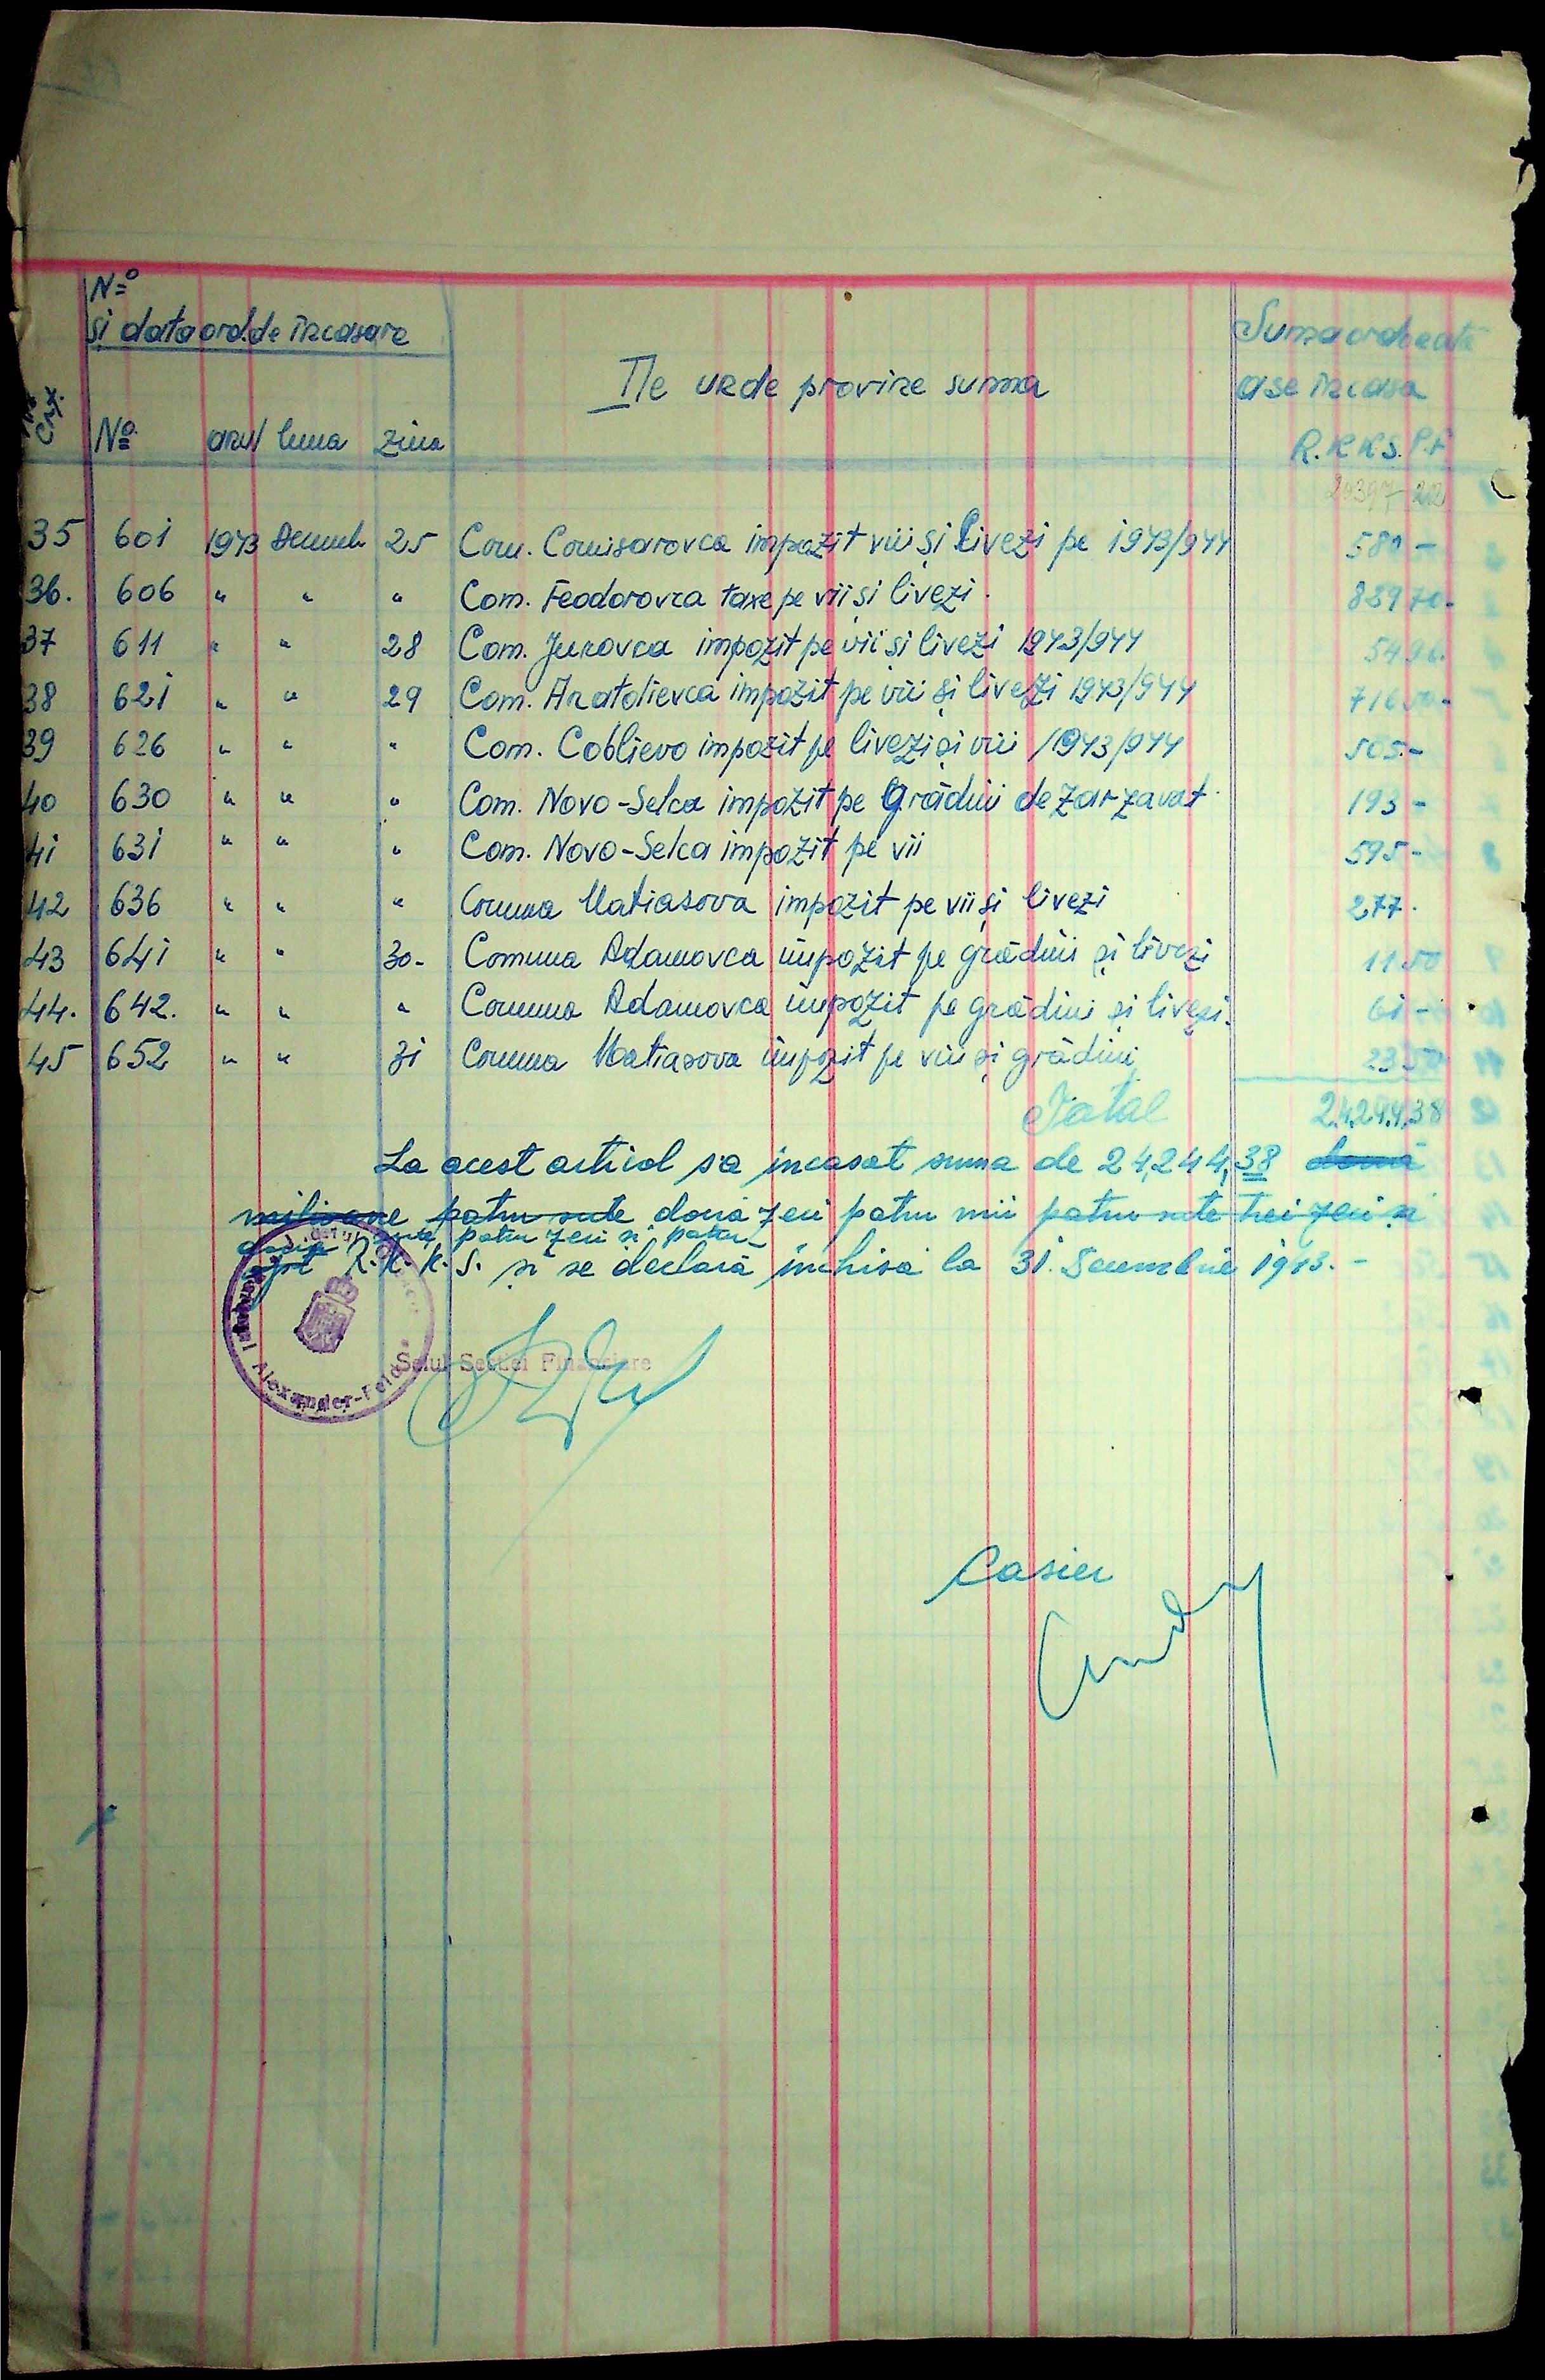 No
și data ord. de încasare
De unde provine suma
Suma ordonată
a se încasa
Crt.
No anul luna ziua
R.K.K.S. P.f
20397-22
35 601 1943 Decemb 25 Com. Comisarovca impozit vii și livezi pe 1943/944 580 -
36. 606 " " " Com. Feodorovca taxe pe vii si livezi.
37 611 " " 28 Com. Jurovca impozit pe vii și livezi 1943/944
38 621 " " 29 Com. Anatolievca impozit pe vii și livezi 1943/944
39 626 " " " Com. Coblievo impozit pe livezi și vii 1943/944 505.-
40 630 " " " Com. Novo-Selca impozit pe grădini de zarzavat 193 -
41 631 " " " Com. Novo-Selca impozit pe vii 595 -
42 636 " " " Comuna Matiasova impozit pe vii și livezi 277.
43 641 " " 30- Comuna Adamovca impozit pe grădini și livezi 1150
44. 642. " " " Comuna Adamovca impozit pe grădini și livezi. 61 -
45 652 " " 31 Comuna Matiasova impozit pe vii și grădini 2350
Total 24.244.38
La acest articol s'a incasat suma de 24,244,38 două
milioane patru sute două zeci patru mii patru sute trei zeci si
două sute patru zeci si patru
opt R.K.K.S. si se declară inchisă la 31. Decembrie 1943. -
Alexander-Feld
Șeful Secției Financiare
Casier